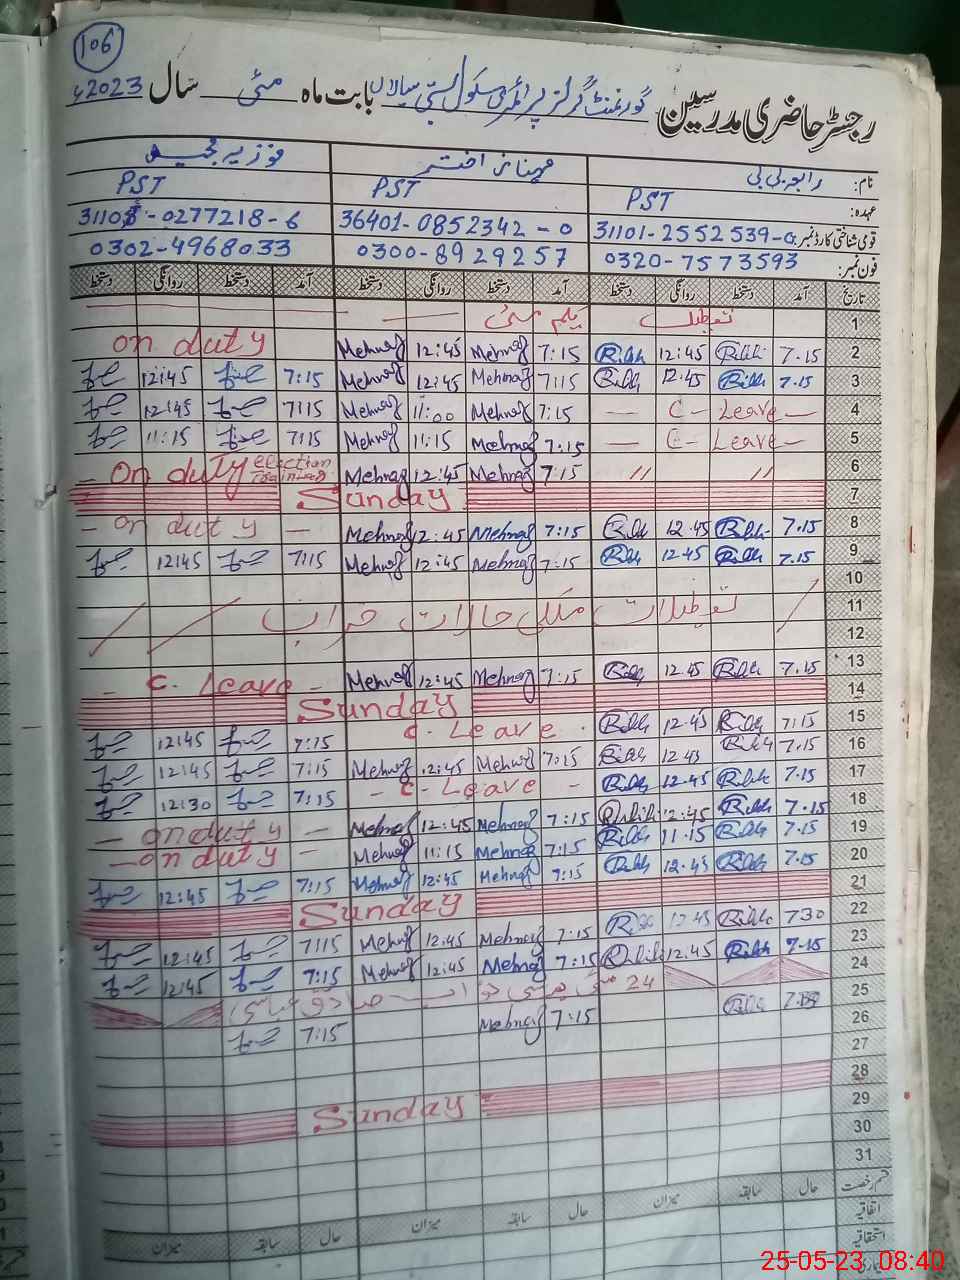 106
رجسٹر حاضری مدرسین گورنمنٹ گرلز پرائمری سکول بستی سیالاں بابت ماہ مئی سال 2023ء
نام: رابعہ بی بی مہناز اختر فوزیہ
عہدہ: PST PST PST
قومی شناختی کارڈ نمبر: 31101-2552539-0 36401-0852342-0 31105-0277218-6
فون نمبر: 0320-7573593 0300-8929257 0302-4968033
تاریخ آمد دستخط روانگی دستخط آمد دستخط روانگی دستخط آمد دستخط روانگی دستخط
1 تعطیل یکم مئی
2 7.15 12:45 7:15 Mehnaz 12:45 Mehnaz on duty
3 7.15 12.45 7:15 Mehnaz 12:45 Mehnaz 7:15 12:45
4 C - Leave - 7:15 Mehnaz 11:00 Mehnaz 7:15 12:45
5 C - Leave - 7:15 Mehnaz 11:15 Mehnaz 7:15 11:15
6 // // 7:15 Mehnaz 12:45 Mehnaz - On duty election Training
7 Sunday
8 7.15 12.45 7:15 Mehnaz 12:45 Mehnaz - on duty -
9 7.15 12.45 7:15 Mehnaz 12:45 Mehnaz 7:15 12:45
10
11 تعطیلات ملکی حالات خراب
12
13 7.15 12.45 7:15 Mehnaz 12:45 Mehnaz - C. Leave -
14 Sunday
15 7:15 12-45 C. Leave 7:15 12:45
16 7.15 12.45 7:15 Mehnaz 12:45 Mehnaz 7:15 12:45
17 7.15 12.45 - C - Leave - 7:15 12:30
18 7.15 12:45 7:15 Mehnaz 12:45 Mehnaz - on duty -
19 7.15 11.15 7:15 Mehnaz 11:15 Mehnaz - on duty -
20 7.15 12.45 7:15 Mehnaz 12:45 Mehnaz 7:15 12:45
21 Sunday
22 730 12.45 7:15 Mehnaz 12:45 Mehnaz 7:15 12:45
23 7.15 12.45 7:15 Mehnaz 12:45 Mehnaz 7:15 12:45
24 24 مئی چھٹی نواب صادق عباسی
25 7:15 Mehnaz 7:15
26
27
28 Sunday
29
30
31
قسم رخصت حال سابقہ میزان حال سابقہ میزان حال سابقہ میزان
اتفاقیہ
استحقاقیہ
بیماری
25-05-23 08:40